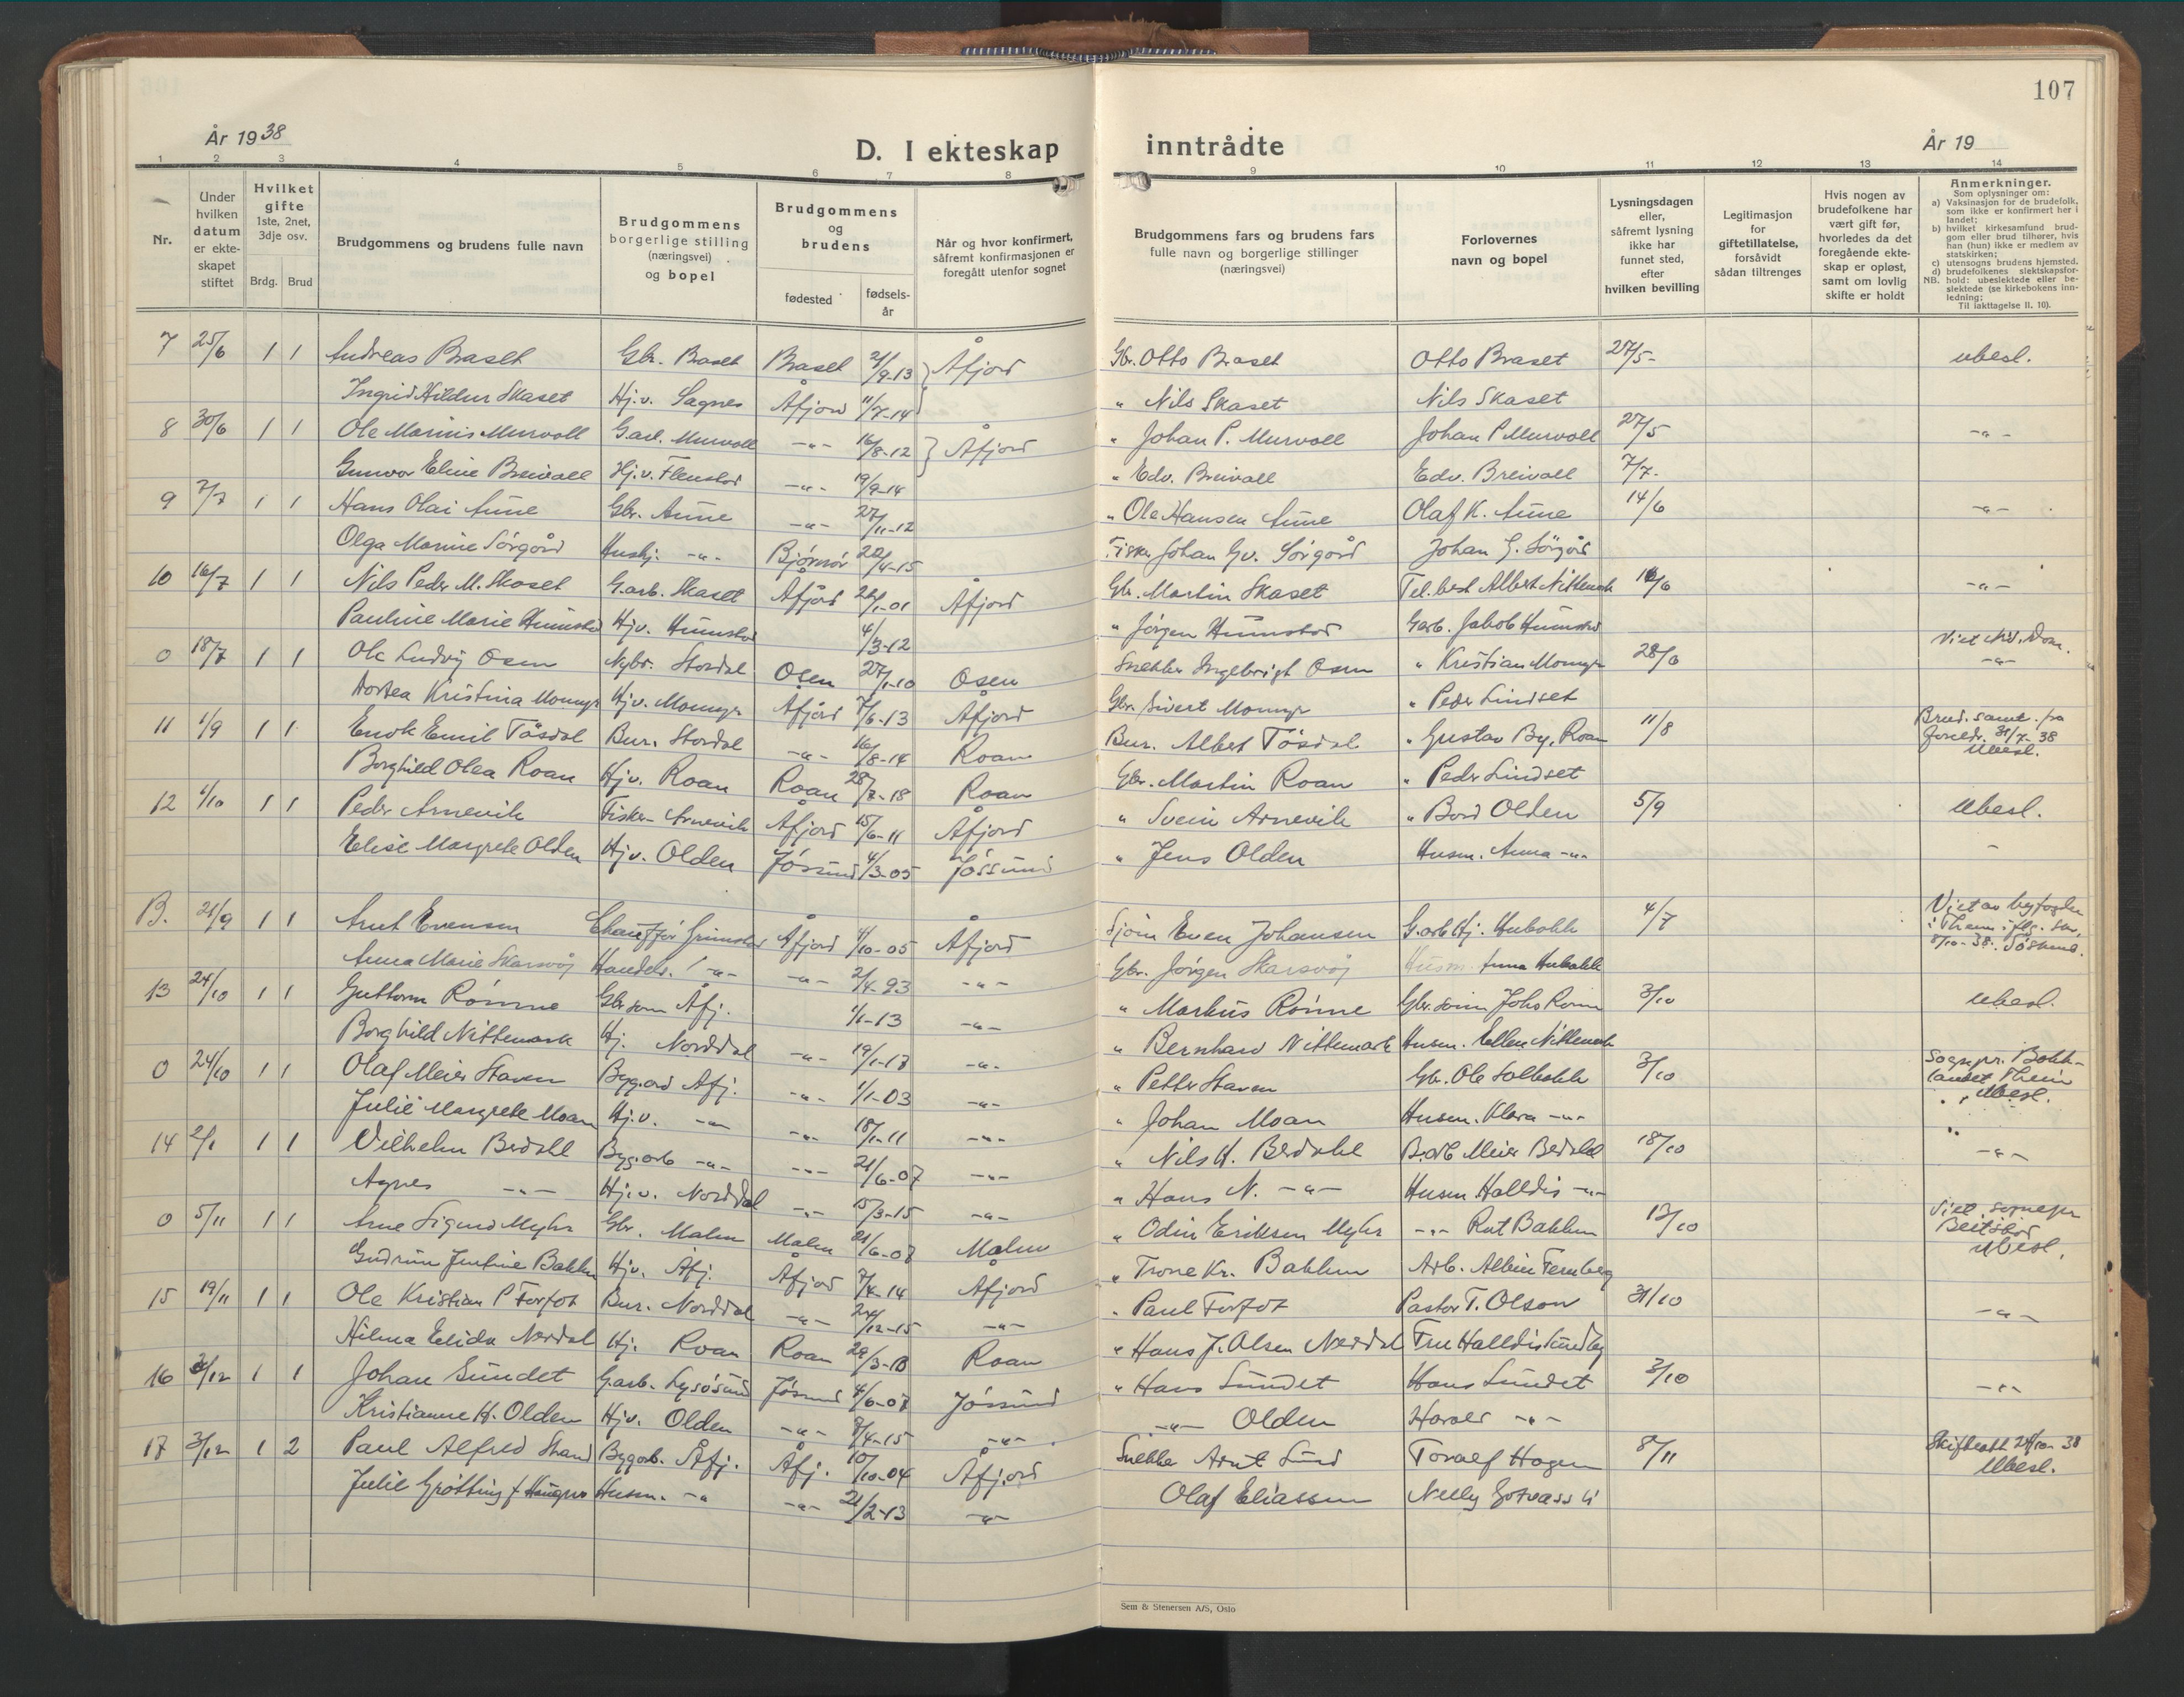 107
År 1938
D. I ekteskap inntrådte
År 19
1 2 3 4 5 6 7 8 9 10 11 12 13 14
Nr.
Under hvilken datum er ekteskapet stiftet
Hvilket gifte 1ste, 2net, 3dje osv.
Brdg. Brud
Brudgommens og brudens fulle navn
Brudgommens borgerlige stilling (næringsvei) og bopel
Brudgommens og brudens
fødested
fødselsår
Når og hvor konfirmert, såfremt konfirmasjonen er foregått utenfor sognet
Brudgommens fars og brudens fars fulle navn og borgerlige stillinger (næringsvei)
Forlovernes navn og bopel
Lysningsdagen eller, såfremt lysning ikke har funnet sted, efter hvilken bevilling
Legitimasjon for giftetillatelse, forsåvidt sådan tiltrenges
Hvis nogen av brudefolkene har vært gift før, hvorledes da det foregående ekteskap er opløst, samt om lovlig skifte er holdt
Anmerkninger.
Som oplysninger om:
a) Vaksinasjon for de brudefolk, som ikke er konfirmert her i landet;
b) hvilket kirkesamfund brudgom eller brud tilhører, hvis han (hun) ikke er medlem av statskirken;
c) utensogns brudens hjemsted.
d) brudefolkenes slektskapsforhold: ubeslektede eller beslektede (se kirkebokens innledning;
NB. Til iakttagelse II. 10).
7 25/6 1 1 Andreas Braset Gbr. Baset Braset 21/9-13 } Åfjord Gbr. Otto Braset Otto Braset 27/5- ubesl.
Ingrid Hildur Skaset Hj.v. Sagnes Åfjord 11/7-14 " Nils Skaset Nils Skaset
8 30/6 1 1 Ole Marius Murvoll G.arb. Murvoll -"- 16/8-12 } Åfjord " Johan P. Murvoll Johan P Murvoll 27/5 -"-
Gunvor Eline Breivoll Hj.v. Flenstad -"- 19/9-14 " Edv. Breivoll Edv. Breivoll 7/7-
9 7/7 1 1 Hans Olai Aune Gbr. Aune -"- 27/11-12 " Ole Hansen Aune Olaf K. Aune 14/6 -"-
Olga Marine Sörgård Hushj. -"- Bjørnør 22/4-15 Fisker Johan Gv. Sörgård Johan G. Sörgård
10 16/7 1 1 Nils Peder M. Skaset G.arb. Skaset Åfjord 22/1-01 Åfjord Gbr. Martin Skaset Tel.best Albert Nittemark /6 -"-
Pauline Marie Humstad Hjv. Humstad 4/3-12 " Jörgen Humstad Garb. Jakob Humstad
0 18/7 1 1 Ole Ludvig Osen Nybr. Stordal Osen 27/1-10 Osen Snekker Ingebrigt Osen " Kristian Momyr 28/6 Viet Nid. Dom. -"-
Dortea Kristina Momyr Hjv. Momyr Åfjord 7/6-13 Åfjord Gbr. Sivert Momyr " Peder Lindset
11 1/9 1 1 Enok Emil Tåsdal Bur. Stordal -"- 16/8-14 Roan Bur. Albert Tåsdal " Gustav By, Roan 11/8 Brud. samt. fra foreldr. 31/7-38 Ubesl.
Borghild Olea Roan Hjv. Roan Roan 28/7-18 Roan Gbr. Martin Roan " Peder Lindset
12 1/10 1 1 Peder Arnevik Fisker Arnevik Åfjord 15/6-11 Åfjord " Svein Arnevik " Bård Olden 5/9 Ubesl.
Elise Margrete Olden Hjv. Olden Jøssund 4/3-05 Jøssund " Jens Olden Husm. Anna -"- -
B. 21/9 1 1 Arnt Evensen Chauffør Grimstad Åfjord 4/10-05 Åfjord Sjöm Even Johansen G.arb Hubakk 4/7 Viet av byfogden i Thrm. iflg. 8/10-38.
Anna Marie Skarsvåg Handels. -"- -"- 2/4-93 -"- Gbr. Jörgen Skarsvåg Husm. Anna Hubakk
13 24/10 1 1 Guttorm Rönne Gbr.sønn Åfj. 1/1-13 -"- " Markus Rönne Gbr.sönn Johs Rönne 3/10 Ubesl.
Borghild Nittemark Hj. Norddal -"- 19/1-17 -"- " Bernhard Nittemark Husm. Ellen Nittemark
0 24/10 1 1 Olaf Meier Staven Byg.arb Åfj. -"- 1/1-03 -"- " Petter Staven Gbr. Ole Solbakk 3/10 Sognepr. Bakklandet Thrm Ubesl.
Julie Margrete Moan Hj.v. -"- -"- 18/1-11 -"- " Johan Moan Husm. Klara -"-
14 2/1 1 1 Vilhelm Berdahl Byg.arb -"- -"- 21/6-07 -"- " Nils H. Berdahl B.arb Meier Berdahl 18/10 -"-
Agnes -"- Hj.v. Norddal -"- 15/3-15 -"- " Hans N. -"- Husm Halldis -"-
0 5/11 1 1 Arne Sigurd Myhr Gbr. Malm Malm 21/6-07 Malm " Odin Eriksen Myhr -"- Rut Bakken 13/10 Viet sognepr Beitstad Ubesl.
Gudrun Jentine Bakken Hjv. Åfj. Åfjord 7/4-14 Åfjord " Trone Kr. Bakken Arb. Albin Fernberg
15 19/11 1 1 Ole Kristian P Forfot Bur. Norddal -"- 24/12-15 -"- " Paul Forfot Pastor T. Olson 31/10 -"-
Hilma Elida Nerdal Hj. Roan Roan 29/3-18 Roan " Hans J. Olsen Nerdal Fru Halldis Sundby
16 3/12 1 1 Johan Sundet G.arb. Lysøsund Jøssund 4/6-07 Jøssund " Hans Sundet Hans Sundet 3/10 -"-
Kristianne H. Olden Hjv. Olden -"- 7/4-15 -"- -"- Olden Harald -"-
17 3/12 1 2 Paul Alfred Strand Bygarb. Åfj. Åfj. 10/10-04 Åfjord Snekker Arnt Lund Toralf Hagen 8/11 Skifteatt 24/10-38 Ubesl.
Julie Grötting f. Haugen Husm. -"- -"- 21/2-13 -"- Olaf Eliassen Nelly Gotvassli
Sem & Stenersen A/S, Oslo